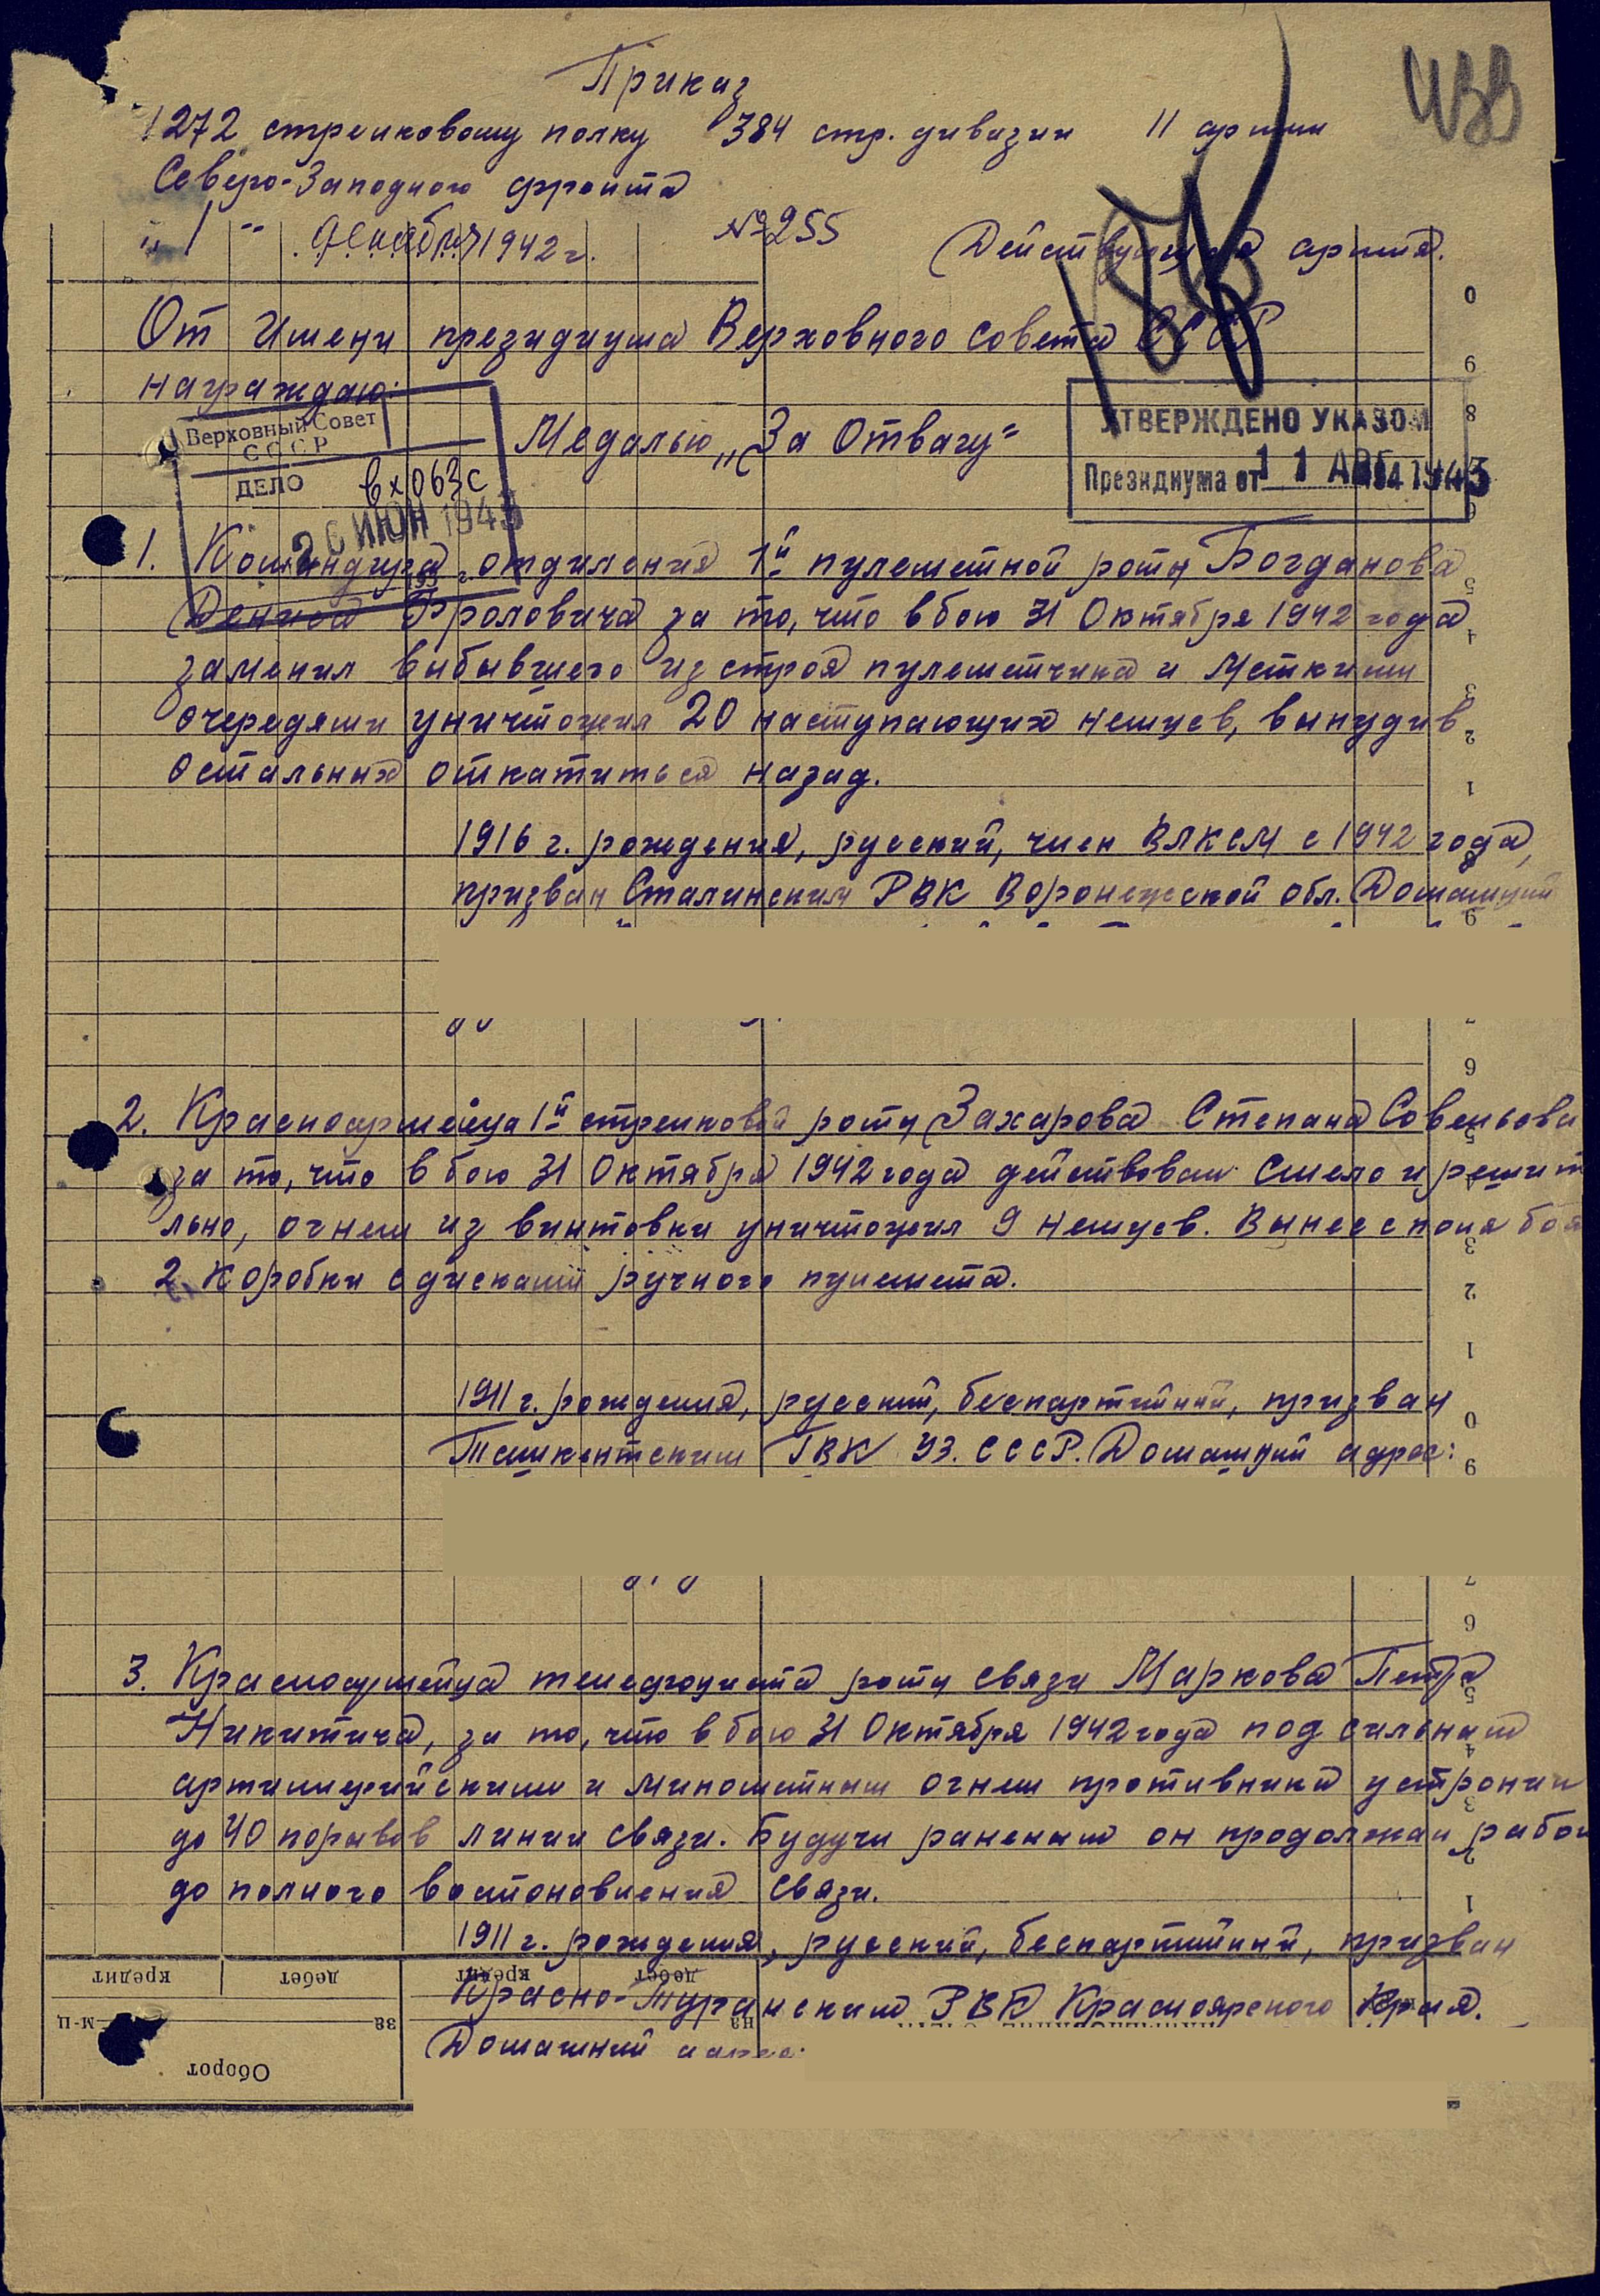 Приказ
1272 стрелковому полку 384 стр. дивизии 11 армии
Северо-Западного фронта
"1" декабря 1942 г. №255 Действующая армия.
От имени президиума Верховного Совета СССР
награждаю:
Верховный Совет
СССР
ДЕЛО
вх 063с
26 ИЮН 1943
Медалью „За Отвагу"
УТВЕРЖДЕНО УКАЗОМ
Президиума от 11 АВГ 1943
1. Командира отделения 1й пулеметной роты Богданова
Дениса Фроловича за то, что в бою 31 Октября 1942 года
заменил выбывшего из строя пулеметчика и меткими
очередями уничтожил 20 наступающих немцев, вынудив
остальных откатиться назад.
1916 г. рождения, русский, член ВЛКСМ с 1942 года,
призван Сталинским РВК Воронежской обл. Домашний
2. Красноармейца 1й стрелковой роты Захарова Степана Совельеви
за то, что в бою 31 Октября 1942 года действовал смело и решит
льно, огнем из винтовки уничтожил 9 немцев. Вынес с поля боя
2 коробки с дисками ручного пулемета.
1911 г. рождения, русский, беспартийный, призван
Ташкентским ГВК Уз. СССР. Домашний адрес:
3. Красноармейца телефониста роты связи Маркова Петра
Никитича, за то, что в бою 31 Октября 1942 года под сильным
артиллерийским и минометным огнем противника устронил
до 40 порывов линии связи. Будучи раненым он продолжал работ
до полного востоновления связи.
1911 г. рождения, русский, беспартийный, призван
Красно-Туранским РВК Красноярского Края.
Домашний адрес:
кредит дебет кредит дебет
м-ц за на
Оборот